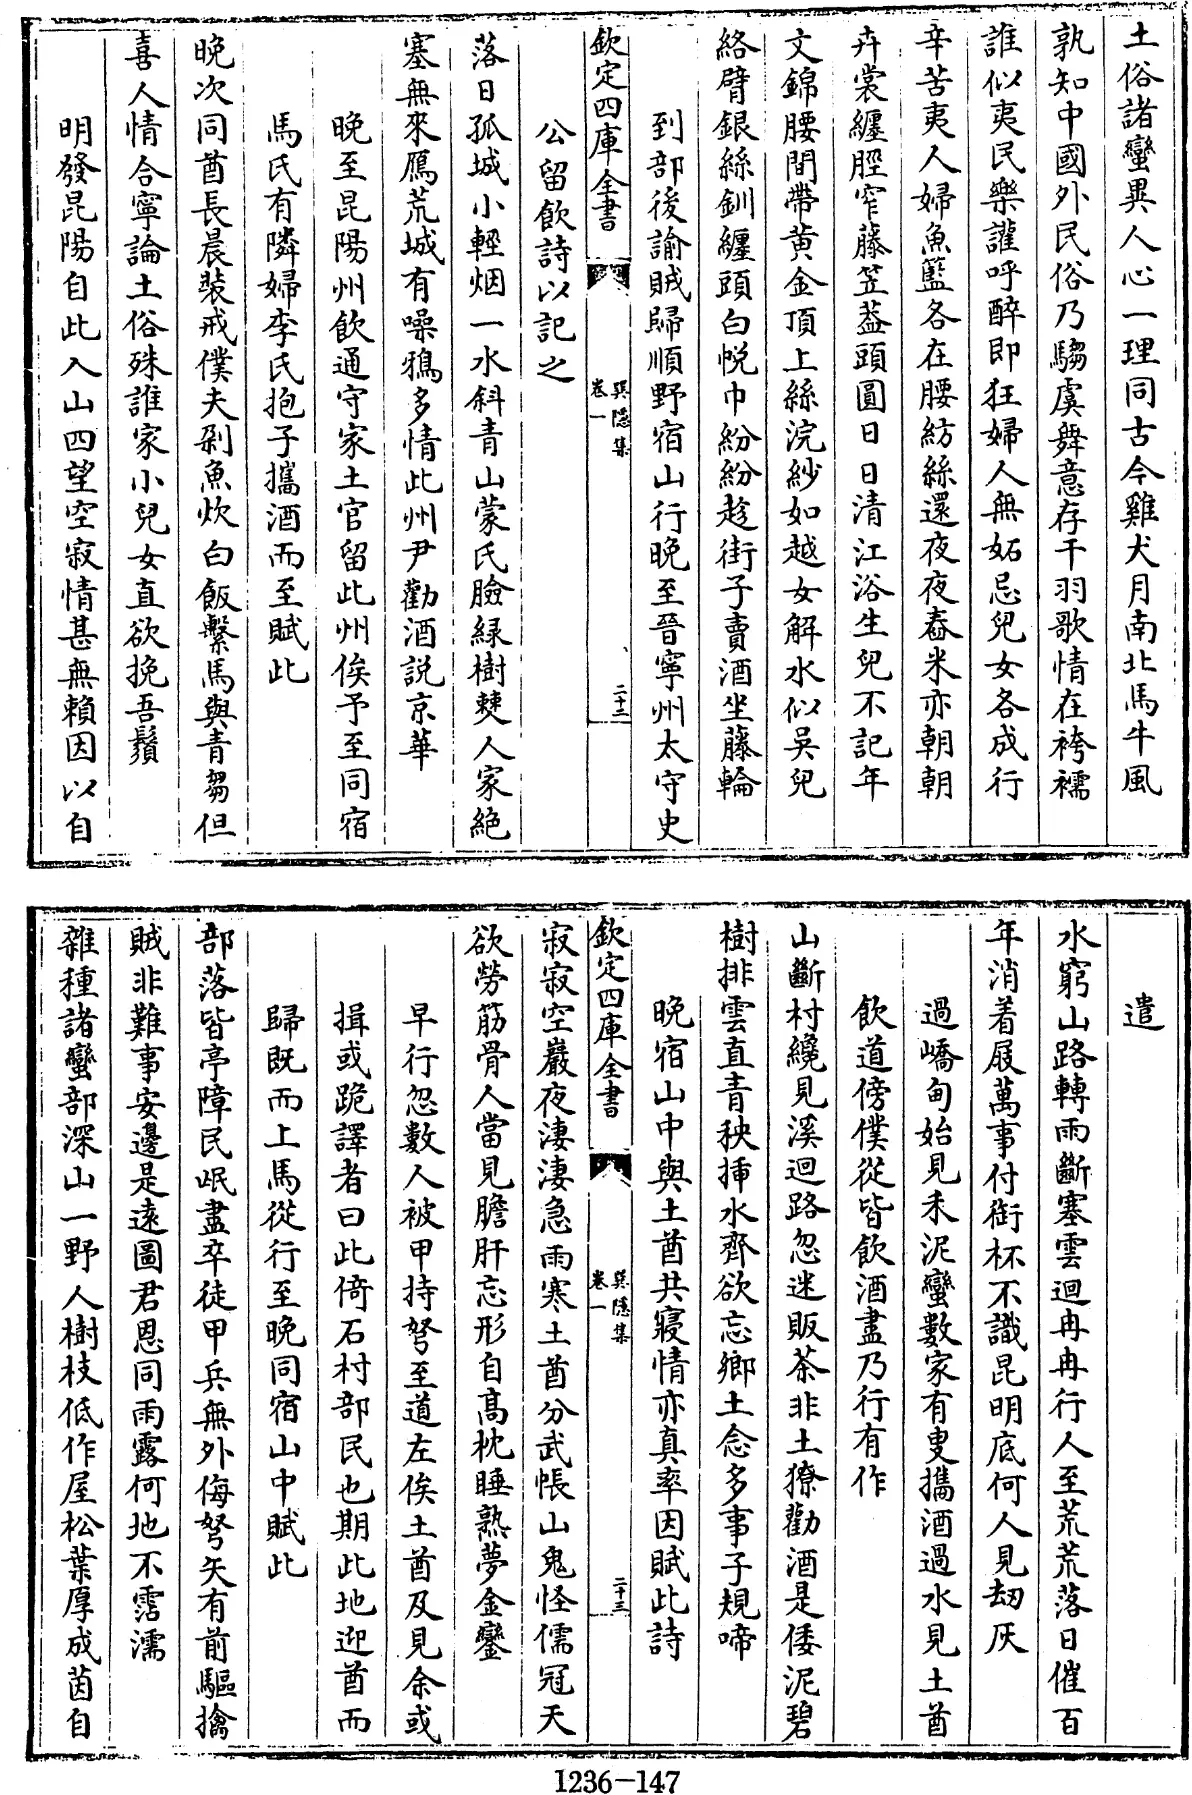 土俗諸蠻異人心一理同古今雞犬月南北馬牛風
孰知中國外民俗乃騶虞舞意存干羽歌情在袴襦
誰似夷民樂讙呼醉即狂婦人無妬忌兒女各成行
辛苦夷人婦魚籃各在腰紡絲還夜夜舂米亦朝朝
卉裳纏脛窄藤笠葢頭圓日日清江浴生兒不記年
文錦腰間帶黄金頂上絲浣紗如越女解水似吳兒
絡臂銀絲釧纏頭白帨巾紛紛趁街子賣酒坐藤輪
到部後諭賊歸順野宿山行晚至晉寧州太守史
欽定四庫全書
巽隠集
卷一
二十二
公留飲詩以記之
落日孤城小輕烟一水斜青山蒙氏臉緑樹僰人家絶
塞無來鴈荒城有噪鴉多情此州尹勸酒説京華
晚至昆陽州飲通守家土官留此州俟予至同宿
馬氏有隣婦李氏抱子攜酒而至賦此
晚次同酋長晨裝戒僕夫剁魚炊白飯繫馬與青芻但
喜人情合寧論土俗殊誰家小兒女直欲挽吾鬚
明發昆陽自此入山四望空寂情甚無頼因以自
遣
水窮山路轉雨斷塞雲迴冉冉行人至荒荒落日催百
年消着屐萬事付銜杯不識昆明底何人見刼灰
過嶠甸始見禾泥蠻數家有叟攜酒過水見土酋
飲道傍僕從皆飲酒盡乃行有作
山斷村纔見溪迴路忽迷販茶非土獠勸酒是倭泥碧
樹排雲直青秧揷水齊欲忘鄉土念多事子規啼
晩宿山中與土酋共寢情亦真率因賦此詩
欽定四庫全書
巽隠集
卷一
二十三
寂寂空巖夜凄凄急雨寒土酋分武帳山鬼怪儒冠天
欲勞筋骨人當見膽肝忘形自髙枕睡熟夢金鑾
早行忽數人被甲持弩至道左俟土酋及見余或
揖或跪譯者曰此倚石村部民也期此地迎酋而
歸既而上馬從行至晚同宿山中賦此
部落皆亭障民岷盡卒徒甲兵無外侮弩矢有前驅擒
賊非難事安邊是遠圖君恩同雨露何地不霑濡
雜種諸蠻部深山一野人樹枝低作屋松葉厚成茵自
1236-147